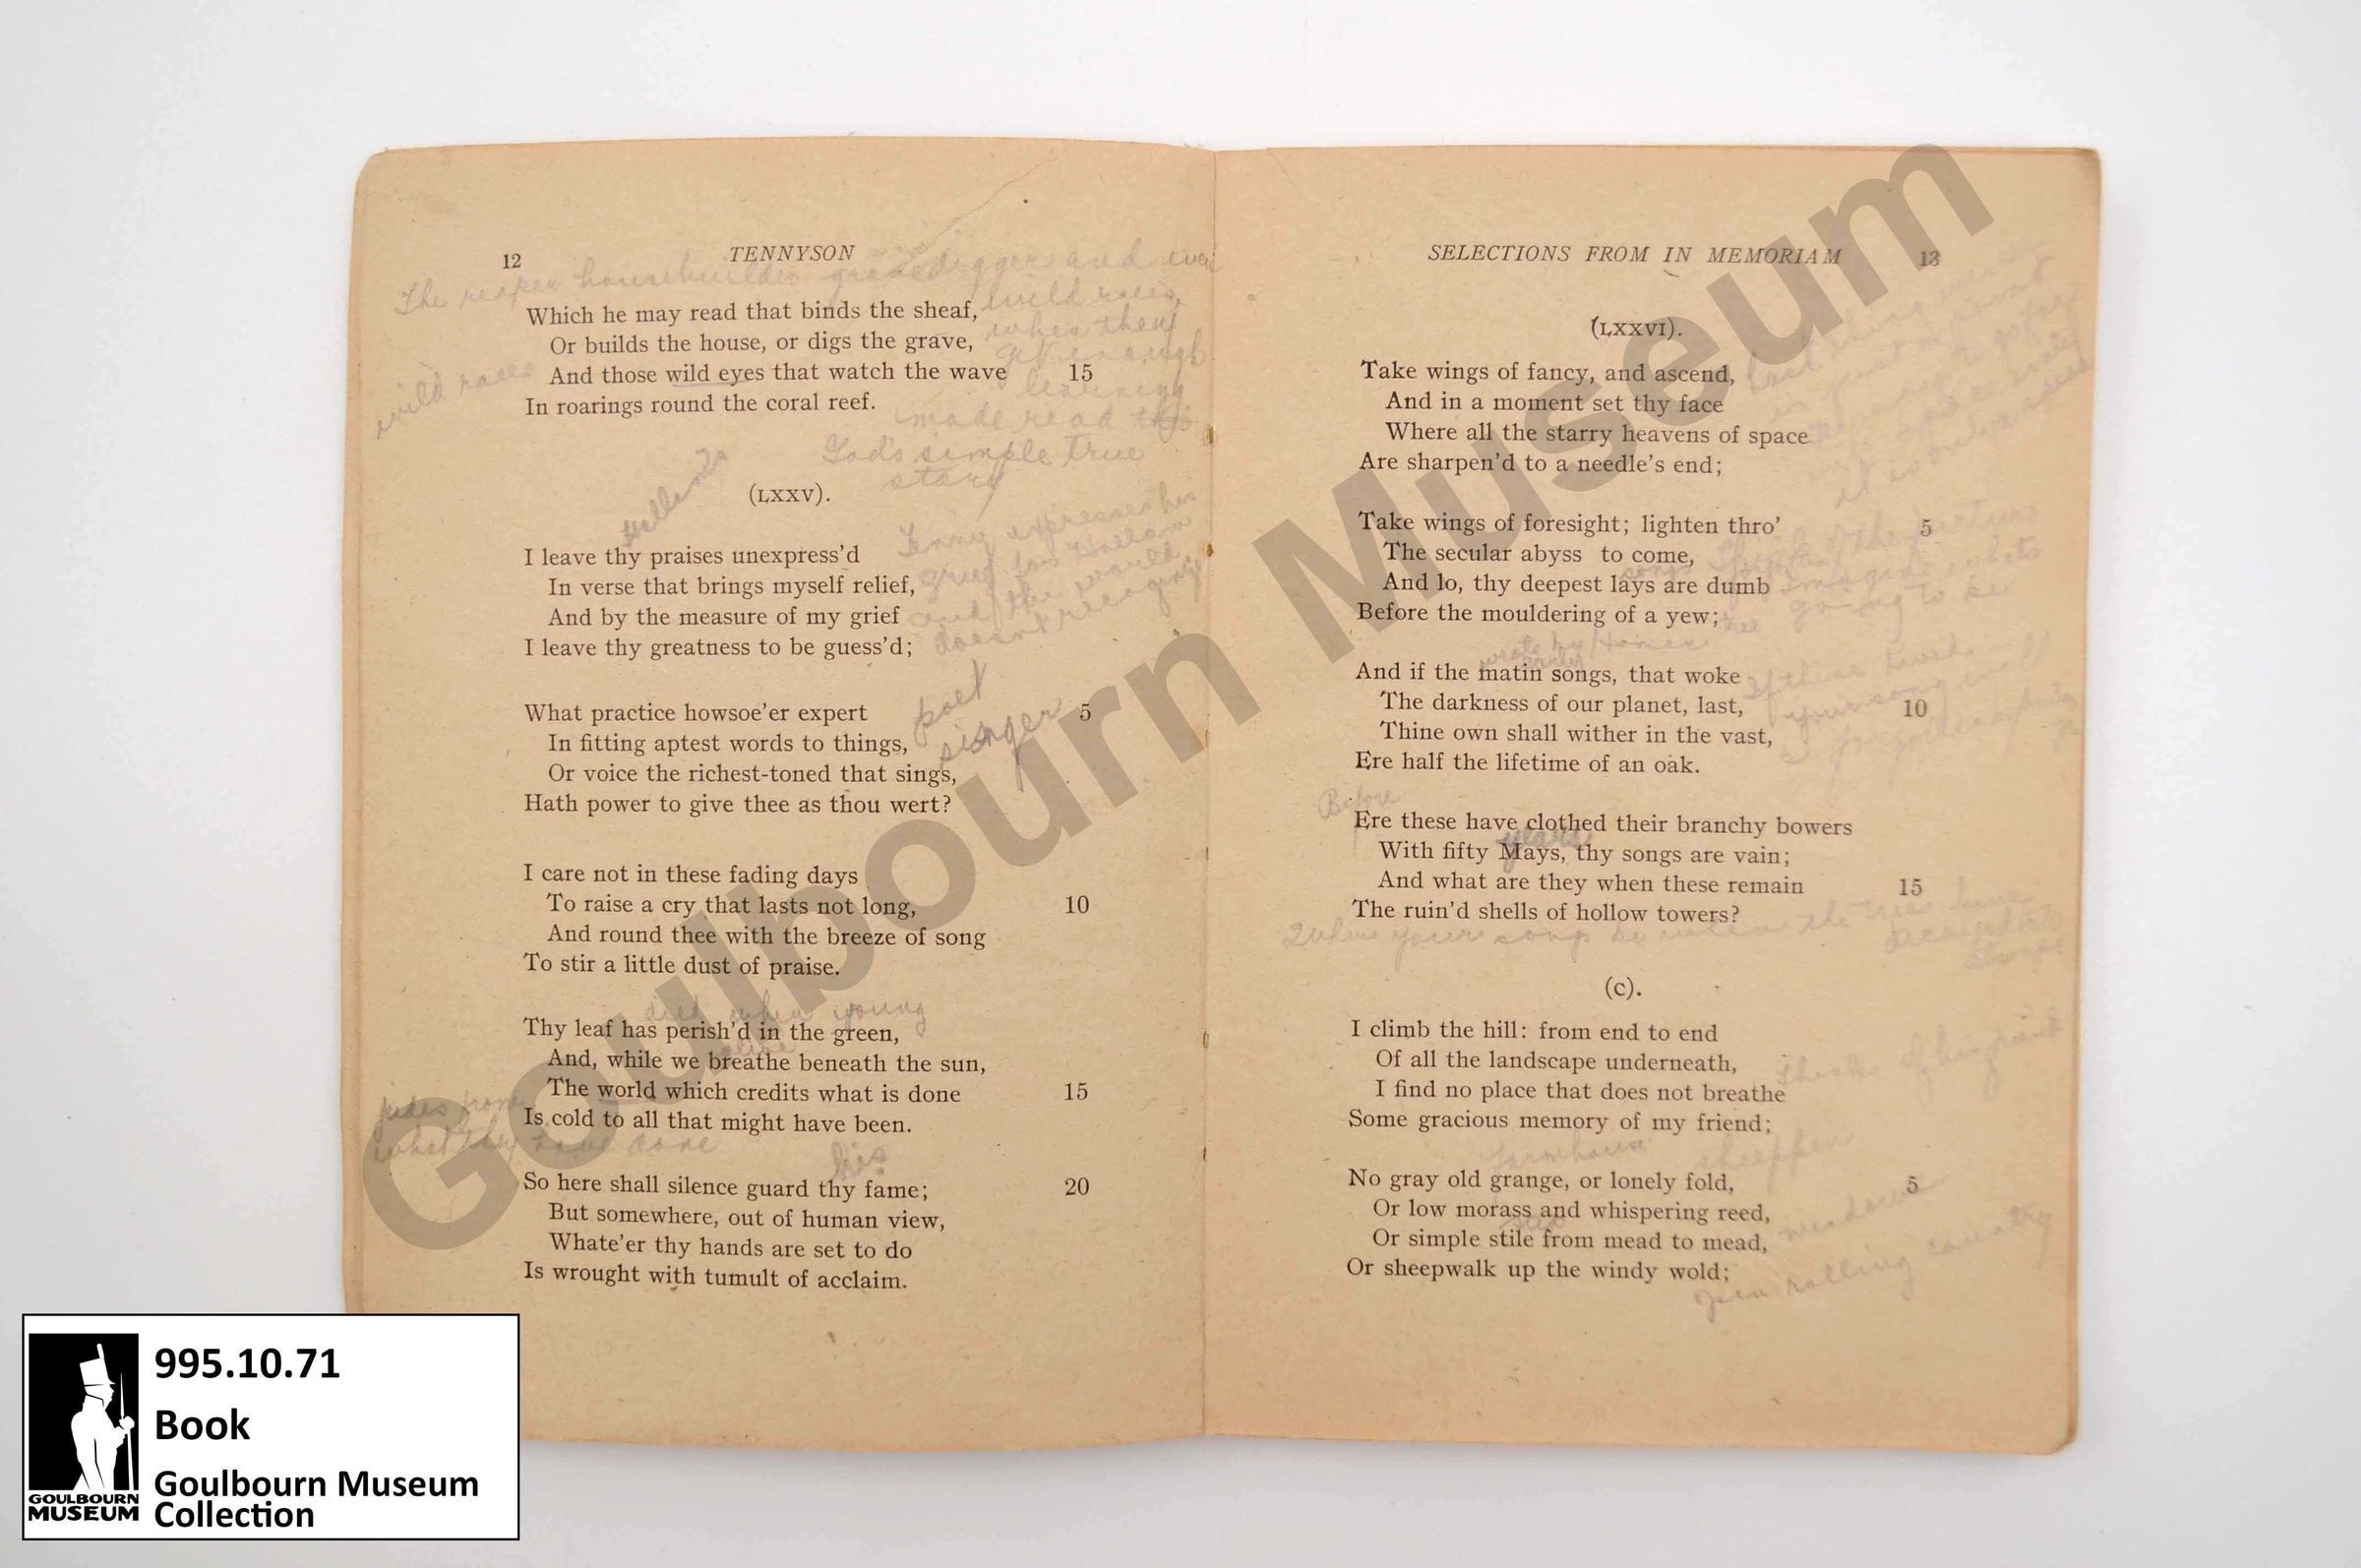 12 TENNYSON
The reaper housebuilder gravedigger and even
Which he may read that binds the sheaf,
wild races,
when they
Or builds the house, or digs the grave,
get enough
wild races
And those wild eyes that watch the wave 15
learning
In roarings round the coral reef.
made read
God's simple true
story
(LXXV).
I leave thy praises unexpress'd
Tenny expresses his
In verse that brings myself relief,
grief for Hallam
And by the measure of my grief
and the world
I leave thy greatness to be guess'd;
doesn't recognize
What practice howsoe'er expert 5
poet
In fitting aptest words to things,
singer
Or voice the richest-toned that sings,
Hath power to give thee as thou wert?
I care not in these fading days
To raise a cry that lasts not long, 10
And round thee with the breeze of song
To stir a little dust of praise.
died when young
Thy leaf has perish'd in the green,
alive
And, while we breathe beneath the sun,
The world which credits what is done 15
Is cold to all that might have been.
what they have done
his
So here shall silence guard thy fame; 20
But somewhere, out of human view,
Whate'er thy hands are set to do
Is wrought with tumult of acclaim.
SELECTIONS FROM IN MEMORIAM 13
(LXXVI).
Take wings of fancy, and ascend,
And in a moment set thy face
Where all the starry heavens of space
Are sharpen'd to a needle's end;
Take wings of foresight; lighten thro' 5
The secular abyss to come,
songs
And lo, thy deepest lays are dumb
going to be
Before the mouldering of a yew;
tree
wrote by Homer
early
And if the matin songs, that woke
The darkness of our planet, last, 10
Thine own shall wither in the vast,
Ere half the lifetime of an oak.
Before
Ere these have clothed their branchy bowers
years
With fifty Mays, thy songs are vain;
And what are they when these remain 15
The ruin'd shells of hollow towers?
(C).
I climb the hill: from end to end
Of all the landscape underneath,
I find no place that does not breathe
Some gracious memory of my friend;
farmhouse
No gray old grange, or lonely fold, 5
Or low morass and whispering reed,
step
Or simple stile from mead to mead,
meadow
Or sheepwalk up the windy wold;
rolling country
Goulbourn Museum
995.10.71
Book
Goulbourn Museum
Collection
GOULBOURN
MUSEUM